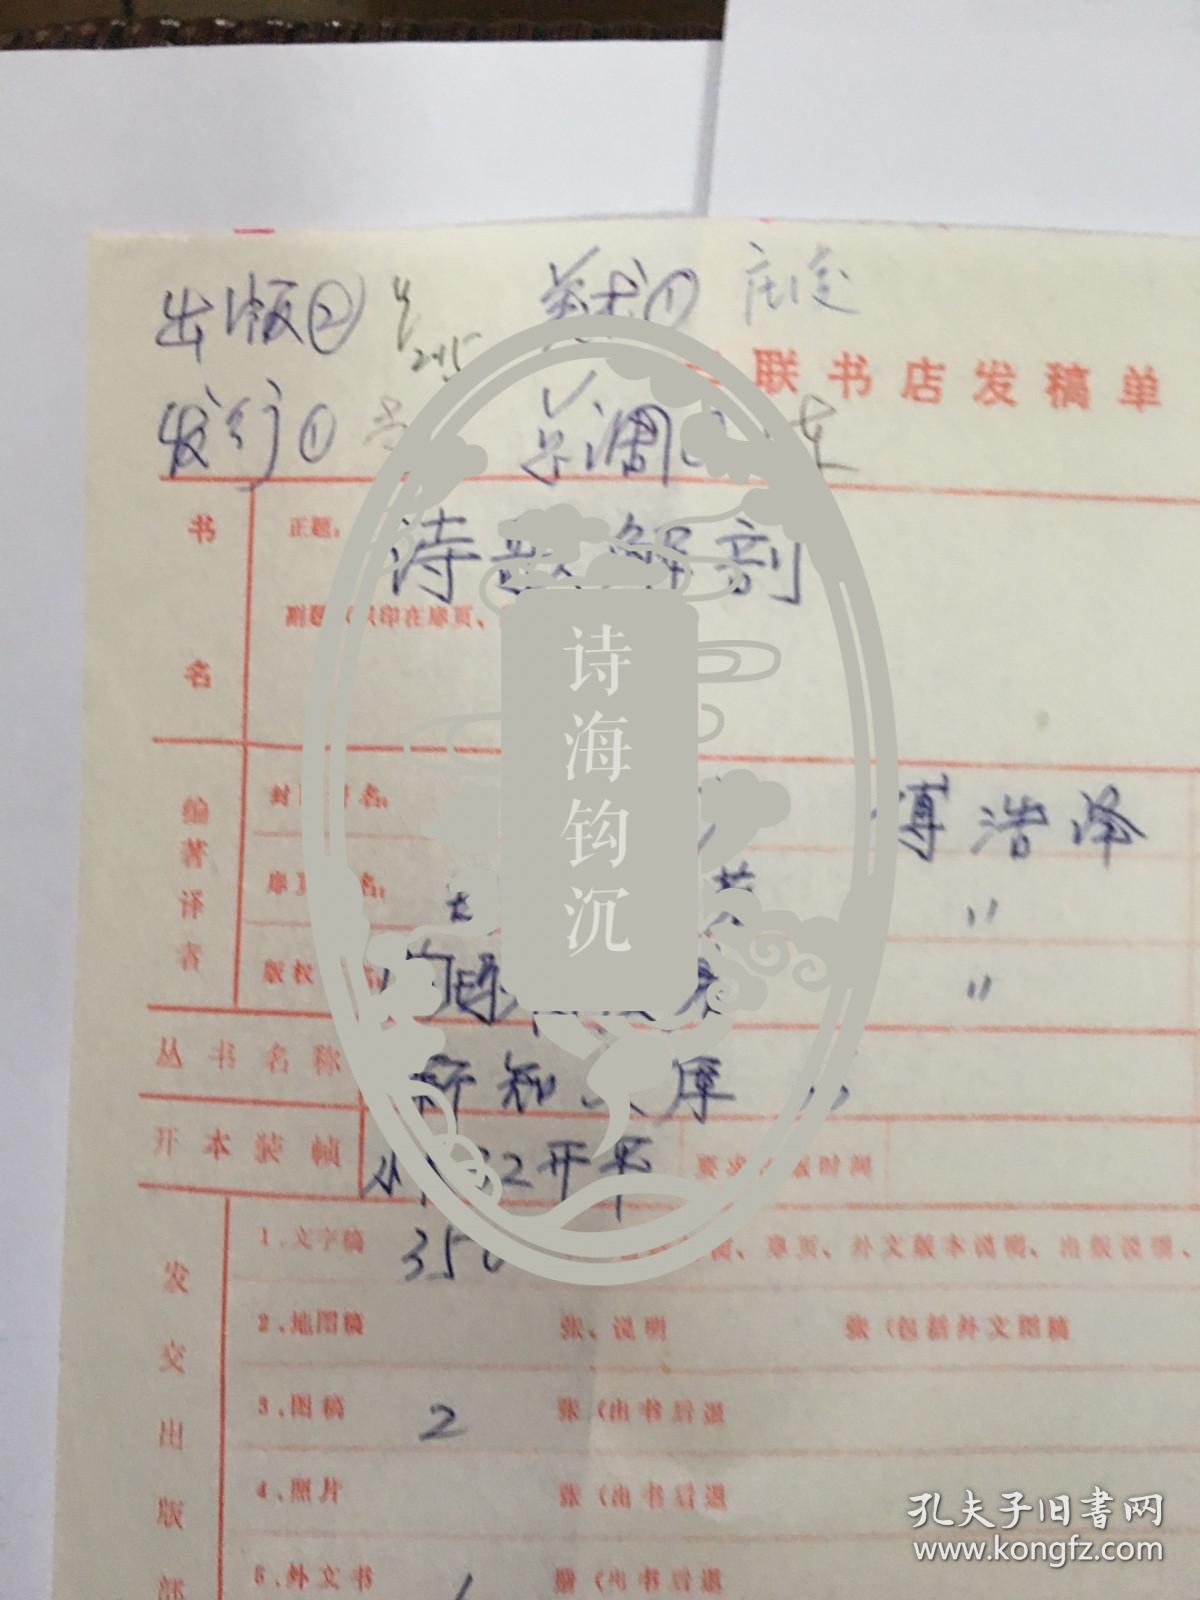 出版② 4/245 美术①
联书店发稿单
发行①
书名
正题: 诗歌解剖
副题 印在扉页、
编著译者
封 名: 傅浩译
扉页 名: 〃
版权 〃
丛书名称 新知文库
开本装帧 32开平 要求 版时间
发交出版部
1.文字稿 350 、扉页、外文版本说明、出版说明、
2.地图稿 张、说明 张(包括外文图稿
3.图稿 2 张(出书后退
4.照片 张(出书后退
5.外文书 册(出书后退
诗海钩沉
孔夫子旧书网
www.kongfz.com